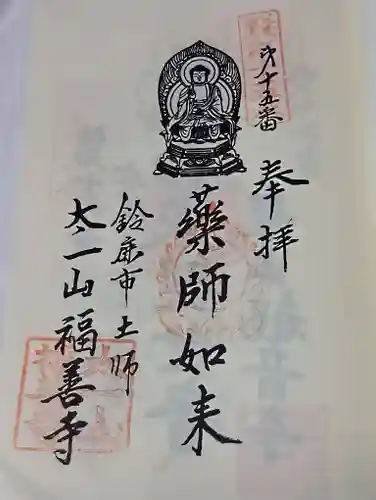 奉拝
才十五番
薬師如来
鈴鹿市土師
太一山福善寺